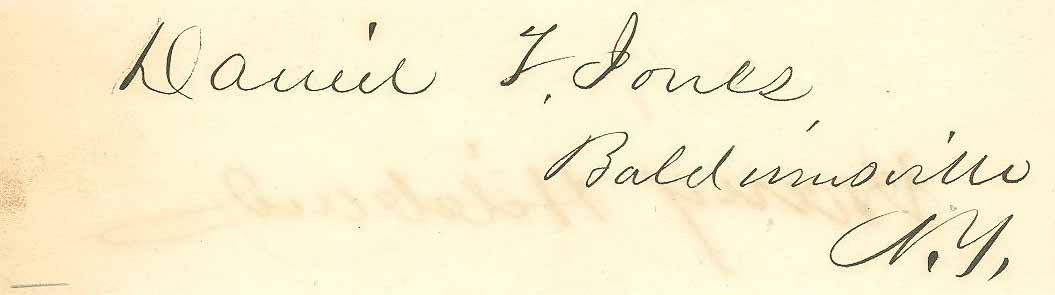 Daniel T. Jones,
Baldwinsville
N.Y.